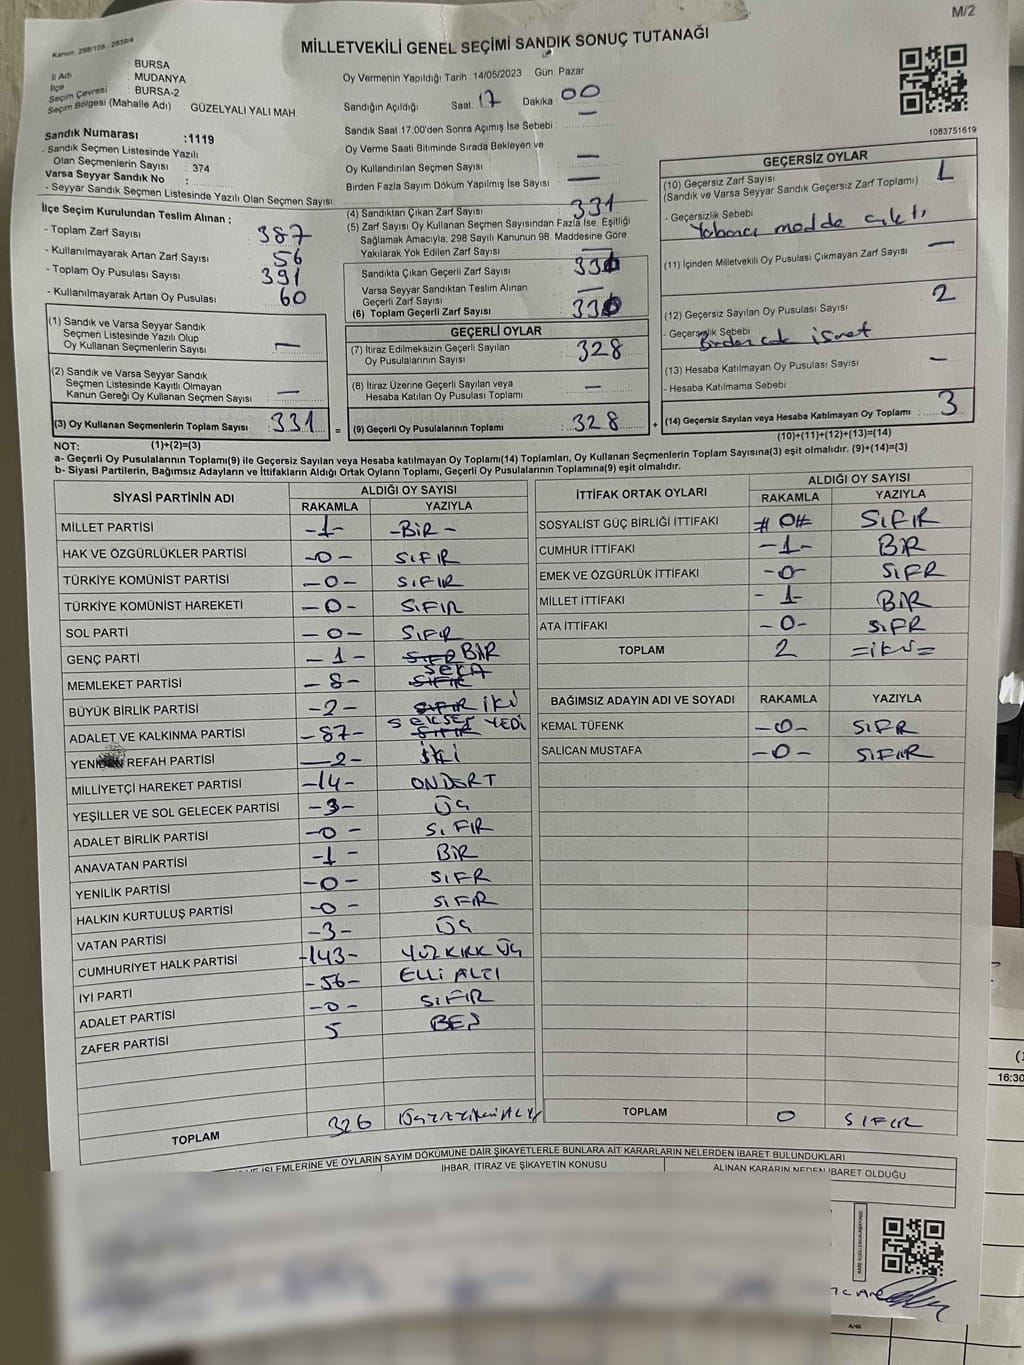 M/2
Kanun: 298/105 , 2839/4
MİLLETVEKİLİ GENEL SEÇİMİ SANDIK SONUÇ TUTANAĞI
İl Adı : BURSA
İlçe : MUDANYA
Seçim Çevresi : BURSA-2
Seçim Bölgesi (Mahalle Adı) : GÜZELYALI YALI MAH.
Oy Vermenin Yapıldığı Tarih :14/05/2023 Gün: Pazar
Sandığın Açıldığı Saat: 17 Dakika : 00
Sandık Saat 17:00'den Sonra Açımış İse Sebebi : —
Oy Verme Saati Bitiminde Sırada Bekleyen ve
Oy Kullandırılan Seçmen Sayısı —
Birden Fazla Sayım Döküm Yapılmış İse Sayısı —
1083751619
Sandık Numarası :1119
- Sandık Seçmen Listesinde Yazılı
Olan Seçmenlerin Sayısı : 374
Varsa Seyyar Sandık No :
- Seyyar Sandık Seçmen Listesinde Yazılı Olan Seçmen Sayısı:
İlçe Seçim Kurulundan Teslim Alınan ;
- Toplam Zarf Sayısı : 387
- Kullanılmayarak Artan Zarf Sayısı : 56
- Toplam Oy Pusulası Sayısı : 391
- Kullanılmayarak Artan Oy Pusulası : 60
(1) Sandık ve Varsa Seyyar Sandık
Seçmen Listesinde Yazılı Olup
Oy Kullanan Seçmenlerin Sayısı : —
(2) Sandık ve Varsa Seyyar Sandık
Seçmen Listesinde Kayıtlı Olmayan
Kanun Gereği Oy Kullanan Seçmen Sayısı : —
(3) Oy Kullanan Seçmenlerin Toplam Sayısı : 331 =
(1)+(2)=(3)
(4) Sandıktan Çıkan Zarf Sayısı : 331
(5) Zarf Sayısı Oy Kullanan Seçmen Sayısından Fazla İse, Eşitliği
Sağlamak Amacıyla, 298 Sayılı Kanunun 98. Maddesine Göre
Yakılarak Yok Edilen Zarf Sayısı : —
Sandıkta Çıkan Geçerli Zarf Sayısı : 330
Varsa Seyyar Sandıktan Teslim Alınan
Geçerli Zarf Sayısı : —
(6) Toplam Geçerli Zarf Sayısı : 330
GEÇERLİ OYLAR
(7) İtiraz Edilmeksizin Geçerli Sayılan
Oy Pusulalarının Sayısı : 328
(8) İtiraz Üzerine Geçerli Sayılan veya
Hesaba Katılan Oy Pusulası Toplamı : —
(9) Geçerli Oy Pusulalarının Toplamı : 328 +
GEÇERSİZ OYLAR
(10) Geçersiz Zarf Sayısı : 1
(Sandık ve Varsa Seyyar Sandık Geçersiz Zarf Toplamı)
- Geçersizlik Sebebi
Yabancı madde çıktı
(11) İçinden Milletvekili Oy Pusulası Çıkmayan Zarf Sayısı : —
(12) Geçersiz Sayılan Oy Pusulası Sayısı : 2
- Geçersizlik Sebebi
Birden çok işaret
(13) Hesaba Katılmayan Oy Pusulası Sayısı : —
- Hesaba Katılmama Sebebi
(14) Geçersiz Sayılan veya Hesaba Katılmayan Oy Toplamı : 3
(10)+(11)+(12)+(13)=(14)
NOT:
a- Geçerli Oy Pusulalarının Toplamı(9) ile Geçersiz Sayılan veya Hesaba katılmayan Oy Toplamı(14) Toplamları, Oy Kullanan Seçmenlerin Toplam Sayısına(3) eşit olmalıdır. (9)+(14)=(3)
b- Siyasi Partilerin, Bağımsız Adayların ve İttifakların Aldığı Ortak Oyların Toplamı, Geçerli Oy Pusulalarının Toplamına(9) eşit olmalıdır.
SİYASİ PARTİNİN ADI ALDIĞI OY SAYISI
RAKAMLA YAZIYLA
MİLLET PARTİSİ -1- -BİR-
HAK VE ÖZGÜRLÜKLER PARTİSİ -0- SIFIR
TÜRKİYE KOMÜNİST PARTİSİ -0- SIFIR
TÜRKİYE KOMÜNİST HAREKETİ -0- SIFIR
SOL PARTİ -0- SIFIR
GENÇ PARTİ -1- SIFR BİR
MEMLEKET PARTİSİ -8- SIFIR SEKA
BÜYÜK BİRLİK PARTİSİ -2- SIFIR İKİ
ADALET VE KALKINMA PARTİSİ -87- SIFIR SEKSEN YEDİ
YENİDEN REFAH PARTİSİ -2- İKİ
MİLLİYETÇİ HAREKET PARTİSİ -14- ONDÖRT
YEŞİLLER VE SOL GELECEK PARTİSİ -3- ÜÇ
ADALET BİRLİK PARTİSİ -0- SIFIR
ANAVATAN PARTİSİ -1- BİR
YENİLİK PARTİSİ -0- SIFR
HALKIN KURTULUŞ PARTİSİ -0- SIFR
VATAN PARTİSİ -3- ÜÇ
CUMHURİYET HALK PARTİSİ -143- YÜZKIRK ÜÇ
İYİ PARTİ -56- ELLİ ALTI
ADALET PARTİSİ -0- SIFIR
ZAFER PARTİSİ 5 BEŞ
TOPLAM 326
İTTİFAK ORTAK OYLARI ALDIĞI OY SAYISI
RAKAMLA YAZIYLA
SOSYALİST GÜÇ BİRLİĞİ İTTİFAKI #0# SIFIR
CUMHUR İTTİFAKI -1- BİR
EMEK VE ÖZGÜRLÜK İTTİFAKI -0- SIFR
MİLLET İTTİFAKI -1- BİR
ATA İTTİFAKI -0- SIFR
TOPLAM 2 =İKİ=
BAĞIMSIZ ADAYIN ADI VE SOYADI RAKAMLA YAZIYLA
KEMAL TÜFENK -0- SIFR
SALİCAN MUSTAFA -0- SIFIR
TOPLAM 0 SIFIR
İŞLEMLERİNE VE OYLARIN SAYIM DÖKÜMÜNE DAİR ŞİKAYETLERLE BUNLARA AİT KARARLARIN NELERDEN İBARET BULUNDUKLARI
İHBAR, İTİRAZ VE ŞİKAYETİN KONUSU ALINAN KARARIN NEDEN İBARET OLDUĞU
16:30